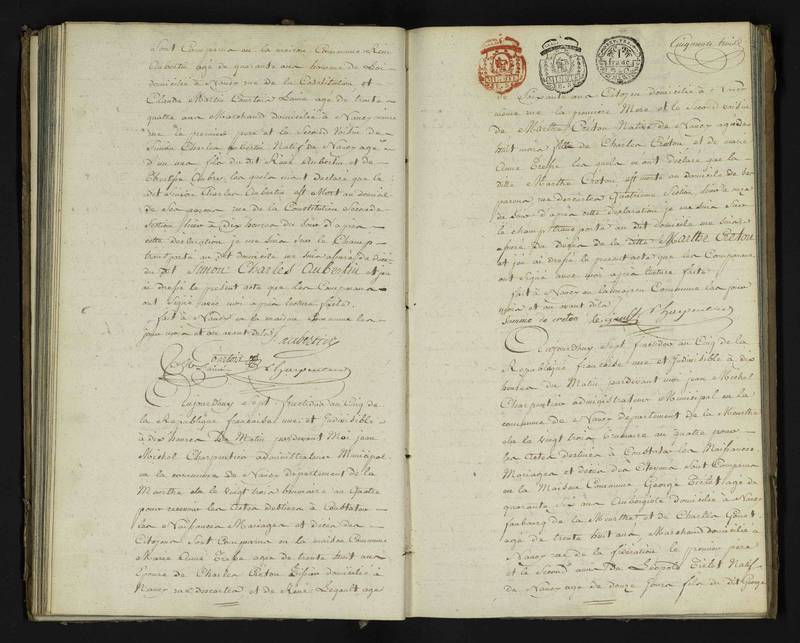 sont Comparus en la maison Commune René
Aubertin agé de quarante ans homme de Loi
domicilié à Nancy rue de la Constitution et
Claude Martin Courtois Lainé agé de trente
quatre ans Marchand domicilié à Nancy même
rue le premier pere et le Second Voisin de
Simon Charles Aubertin Natif de Nancy agé
d'un an fils du dit René Aubertin et de
Aubry, les quels m'ont declaré que le
dit Simon Charles Aubertin est Mort au domicile
de Ses parens rue de la Constitution Seconde
Section hier à Dix heures du Soir D'apres
cette declaration je me suis sur le Champ
transporté au dit domicile me suis assuré du décès
du dit Simon Charles Aubertin et j'ai
ai dressé le présent acte que les Comparans
ont Signé avec moi après lecture faite.
fait à Nancy en la maison Commune les
jour mois et an avant dits Aubertin
Courtois Lainé Charpentier
Aujourdhuy Sept fructidor an Cinq de
la République française une et Indivisible
à dix heures Du Matin pardevant Moi jean
Michel Charpentier administrateur Municipal
en la commune de Nancy département de la
Meurthe élu le vingt trois brumaire an Quatre
pour recevoir les Actes destinés à Constater
les Naissances Mariages et décès des
Citoyens Sont Comparus en la maison Commune
Marie Anne agée de trente huit ans
Epouse de Charles Crétou domiciliée à
Nancy rue descartes et de René Legault agé
1 franc
Cinquante huit
de Soixante ans Citoyen domicilié à Nancy
même rue la première Mere et le Second voisin
de Marthe Crétou Native de Nancy agée de
huit mois fille de Charles Crétou et de marie
Anne les quels m'ont declaré que la
dite Marthe Crétou est morte au domicile de Ses
parens rue descartes Quatrieme Section hier à
du Soir d'apres cette déclaration je me suis Sur
le champ transporté au Dit domicile me suis
assuré Du Décès de la dite Marthe Crétou
et j'ai ai dressé le present acte que les Comparans
ont Signé avec moi après lecture faite
fait à Nancy en la maison Commune les jour
mois et an avant dits
femme de creton legault Charpentier
Aujourdhuy Sept fructidor an Cinq de la
Republique française une et Indivisible à dix
heures Du Matin pardevant moi jean Michel
Charpentier administrateur Municipal en la
commune de Nancy département de la Meurthe
élu le vingt trois brumaire an quatre pour
les Actes destinés à Constater les Naissances
Mariages et décès des Citoyens Sont Comparus
en la Maison Commune George agé de
quarante ans Aubergiste domicilié à Nancy
faubourg de la Meurthe et de Charles
agé de trente huit ans Marchand domicilié à
Nancy rue de la fédération le premier pere
et le Second ami De Léopold Natif
de Nancy agé de douze jours fils du dit George